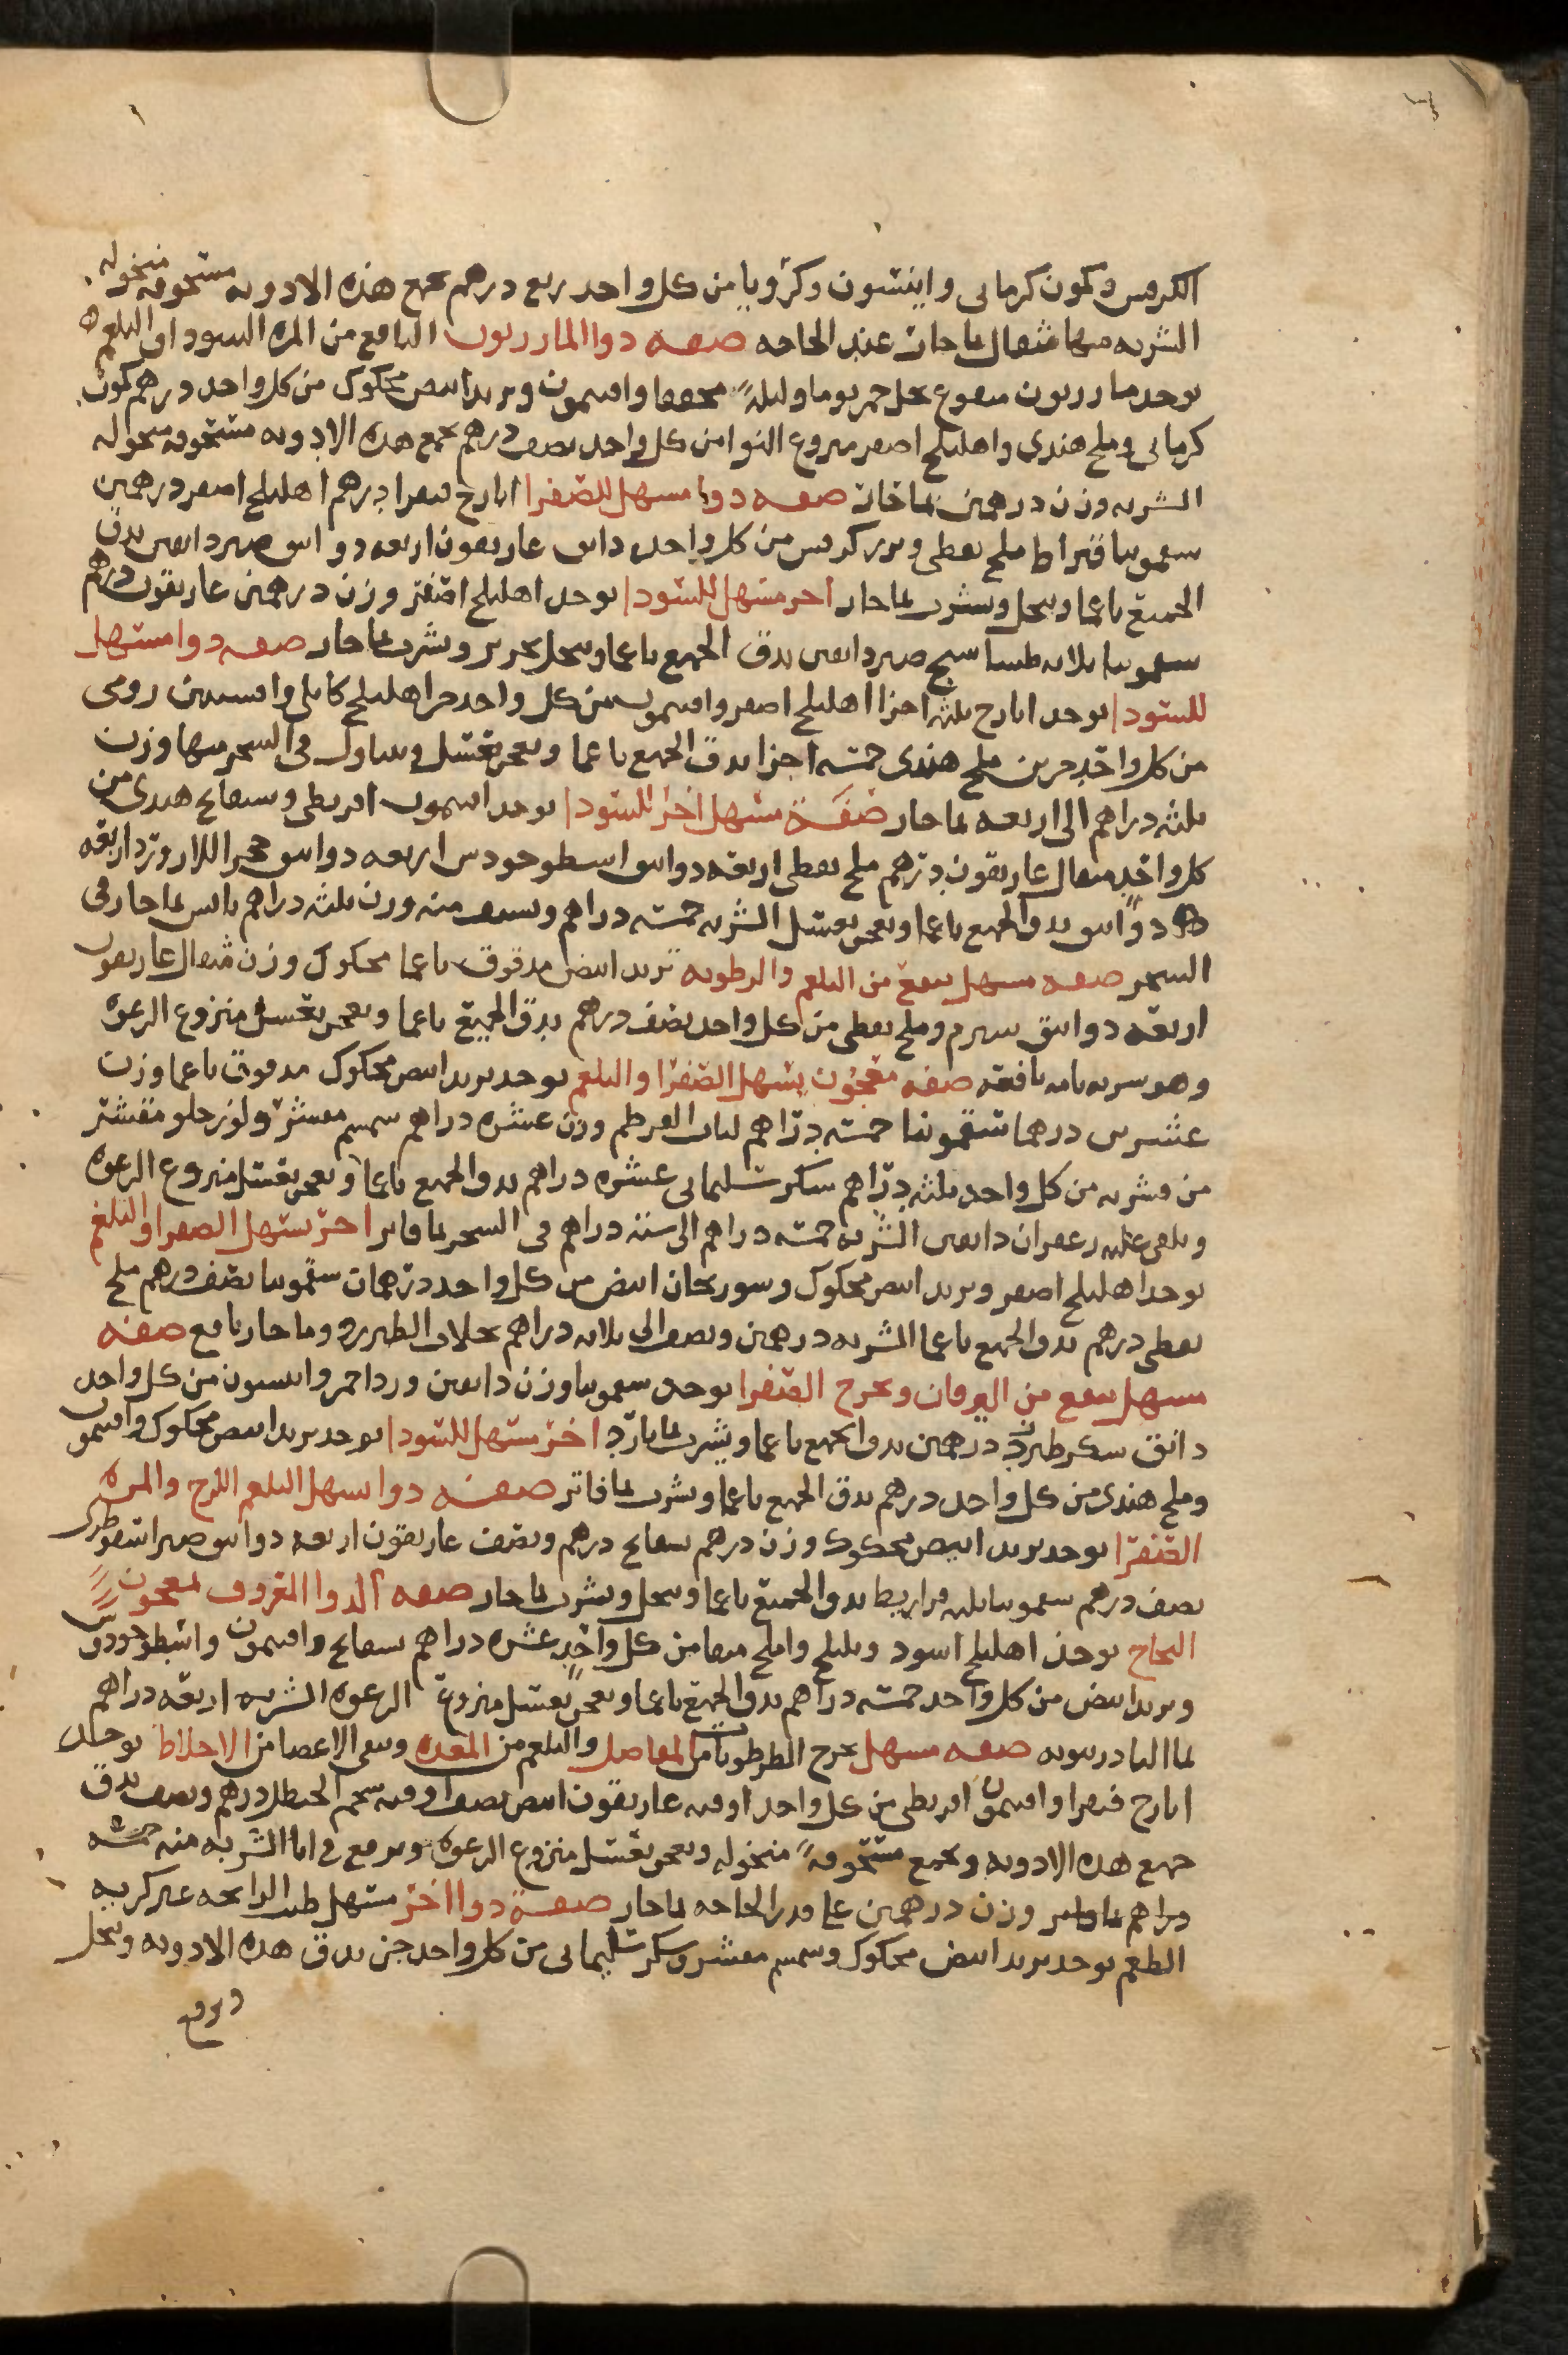 الكرفس وكمون كرماني واينسون وكرويا من كل واحد ربع درهم تجمع هذه الادويه مسحوقه منخوله
الشربه منها مثقال بما حار عند الحاجه صفه دوا المازريون النافع من المره السودا والبلغم
يوخذ مازريون منقوع بخل خمر يوما وليلة مجففا وافتيمون وتربد ابيض محكوك من كل واحد درهم كمون
كرماني وملح هندي واهليلج اصفر منزوع النوا من كل واحد نصف درهم تجمع هذه الادويه مسحوقه منخوله
الشربه وزن درهمين بما حار صفه دوا مسهل للصفرا ايارج فيقرا درهم اهليلج اصفر درهمين
سقمونيا قيراط ملح نفطي وبزر كرفس من كل واحد دانق غاريقون اربعه دوانق صبر دانقين يدق
الجميع ناعما وينخل ويشرب بما حار اخر مسهل للسودا يوخذ اهليلج اصفر وزن درهمين غاريقون درهم
سقمونيا ثلاثه صبر دانقين يدق الجميع ناعما وينخل بحرير ويشرب بما حار صفه دوا مسهل
للسودا يوخذ ايارج ثلثه اجزا اهليلج اصفر وافتيمون من كل واحد جزا اهليلج كابلي وافسنتين رومي
من كل واحد جزين ملح هندي خمسه اجزا يدق الجميع ناعما ويعجن بعسل ويتناول في السحر منها وزن
ثلثه دراهم الى اربعه بما حار صفة مسهل اخر للسودا يوخذ افتيمون اقريطي وبسفايج هندي من
كل واحد مثقال غاريقون درهم ملح نفطي اربعه دوانق اسطوخودس اربعه دوانق حجر اللازورد اربعه
دوانق يدق الجميع ناعما ويعجن بعسل الشربه خمسه دراهم ويسف منه وزن ثلثه دراهم يابس بما حار في
السحر صفه مسهل ينفع من البلغم والرطوبه تربد ابيض مدقوق ناعما محكوك وزن مثقال غاريقون
اربعه دوانق شبرم وملح نفطي من كل واحد نصف درهم يدق الجميع ناعما ويعجن بعسل منزوع الرغوه
وهو شربه تامه نافعه صفه معجون يسهل الصفرا والبلغم يوخذ تربد ابيض محكوك مدقوق ناعما وزن
عشرين درهما سقمونيا خمسه دراهم لباب القرطم وزن عشره دراهم سمسم مقشر ولوز حلو مقشر
من قشريه من كل واحد ثلثه دراهم سكر سليماني عشره دراهم يدق الجميع ناعما ويعجن بعسل منزوع الرغوه
ويلقى عليه زعفران دانقين الشربه خمسه دراهم الى سته دراهم في السحر بما فاتر اخر يسهل الصفرا والبلغم
يوخذ اهليلج اصفر وتربد ابيض محكوك وسورنجان ابيض من كل واحد درهمان سقمونيا نصف درهم ملح
نفطي درهم يدق الجميع ناعما الشربه درهمين ونصف الى ثلاثه دراهم بجلاب الطبرزد وما حار نافع صفه
مسهل ينفع من اليرقان ويخرج الصفرا يوخذ سقمونيا وزن دانقين ورد احمر وانيسون من كل واحد
دانق سكر طبرزد درهمين يدق الجميع ناعما ويشرب بما بارد اخر مسهل للسودا يوخذ تربد ابيض محكوك وافتيمون
وملح هندي من كل واحد درهم يدق الجميع ناعما ويشرب بما فاتر صفه دوا يسهل البلغم اللزج والمره
الصفرا يوخذ تربد ابيض محكوك وزن درهم بسفايج درهم ونصف غاريقون اربعه دوانق صبر اسقوطري
نصف درهم سقمونيا ثلثه قراريط يدق الجميع ناعما وينخل ويشرب بما حار صفه الدوا المعروف بمعجون
النجاح يوخذ اهليلج اسود وبليلج واملج منقا من كل واحد عشره دراهم بسفايج وافتيمون واسطوخودوس
وتربد ابيض من كل واحد خمسه دراهم يدق الجميع ناعما ويعجن بعسل منزوع الرغوه الشربه اربعه دراهم
بما البادرنبويه صفه مسهل يخرج الرطوبات من المفاصل والبلغم من المعده وينقي الاعضا من الاخلاط يوخذ
ايارج فيقرا وافتيمون اقريطي من كل واحد اوقيه غاريقون ابيض نصف اوقيه شحم الحنظل درهم ونصف يدق
جميع هذه الادويه وتجمع مسحوقة منخوله ويعجن بعسل منزوع الرغوه ويرفع في انا الشربه منه خمسه
دراهم بما فاتر وزن درهمين على قدر الحاجه بما حار صفة دوا اخر مسهل طيب الرايحه غير كريه
الطعم يوخذ تربد ابيض محكوك وسمسم مقشر وسكر سليماني من كل واحد جزء يدق هذه الادويه وينخل